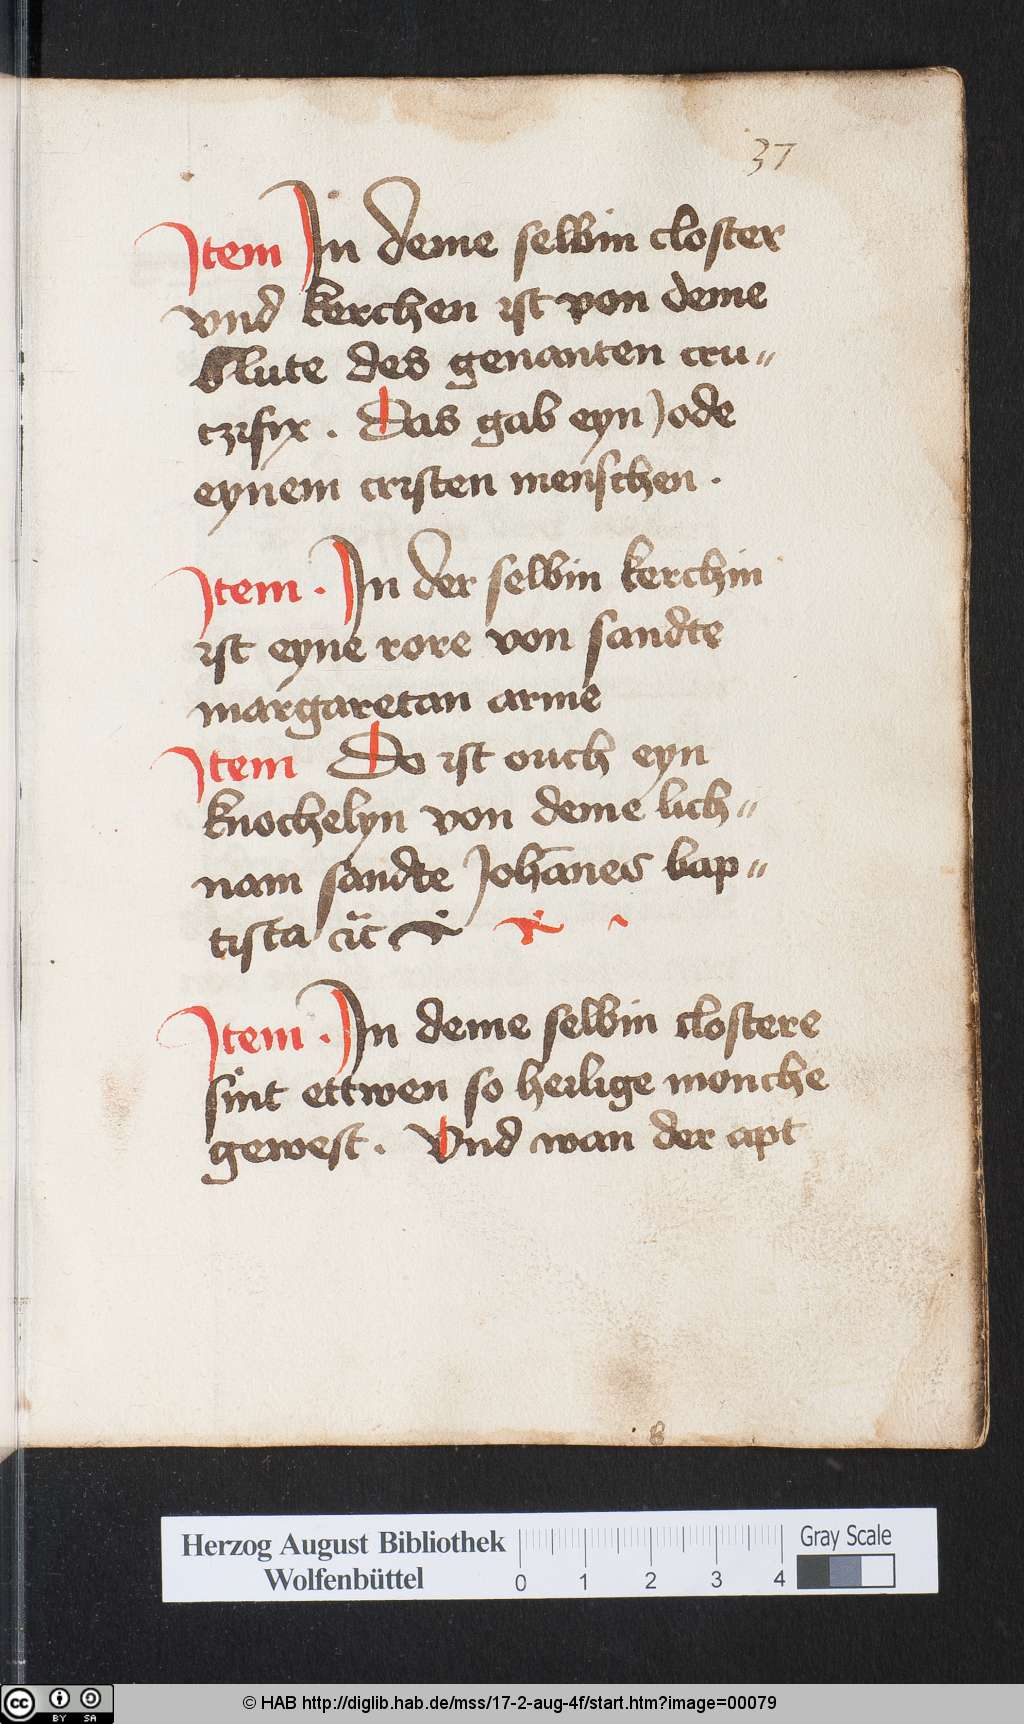 37
Item In deme selbin closter
vnd kerchen ist von deme
Blute des genanten cru〃
czifix . Das gab eyn Jode
eynem cristen menschen .
Item . In der selbin kerchin
ist eyne rore von sandte
margaretan arme
Item Do ist ouch eyn
knochelyn von deme lich〃
nam sandte Joha̅nes bap〃
tista
Item . In deme selbin clostere
sint ettwen so heilige monche
gewest . Vnd wan der apt
8
Herzog August Bibliothek
Wolfenbüttel
0 1 2 3 4
Gray Scale
cc BY SA
© HAB http://diglib.hab.de/mss/17-2-aug-4f/start.htm?image=00079